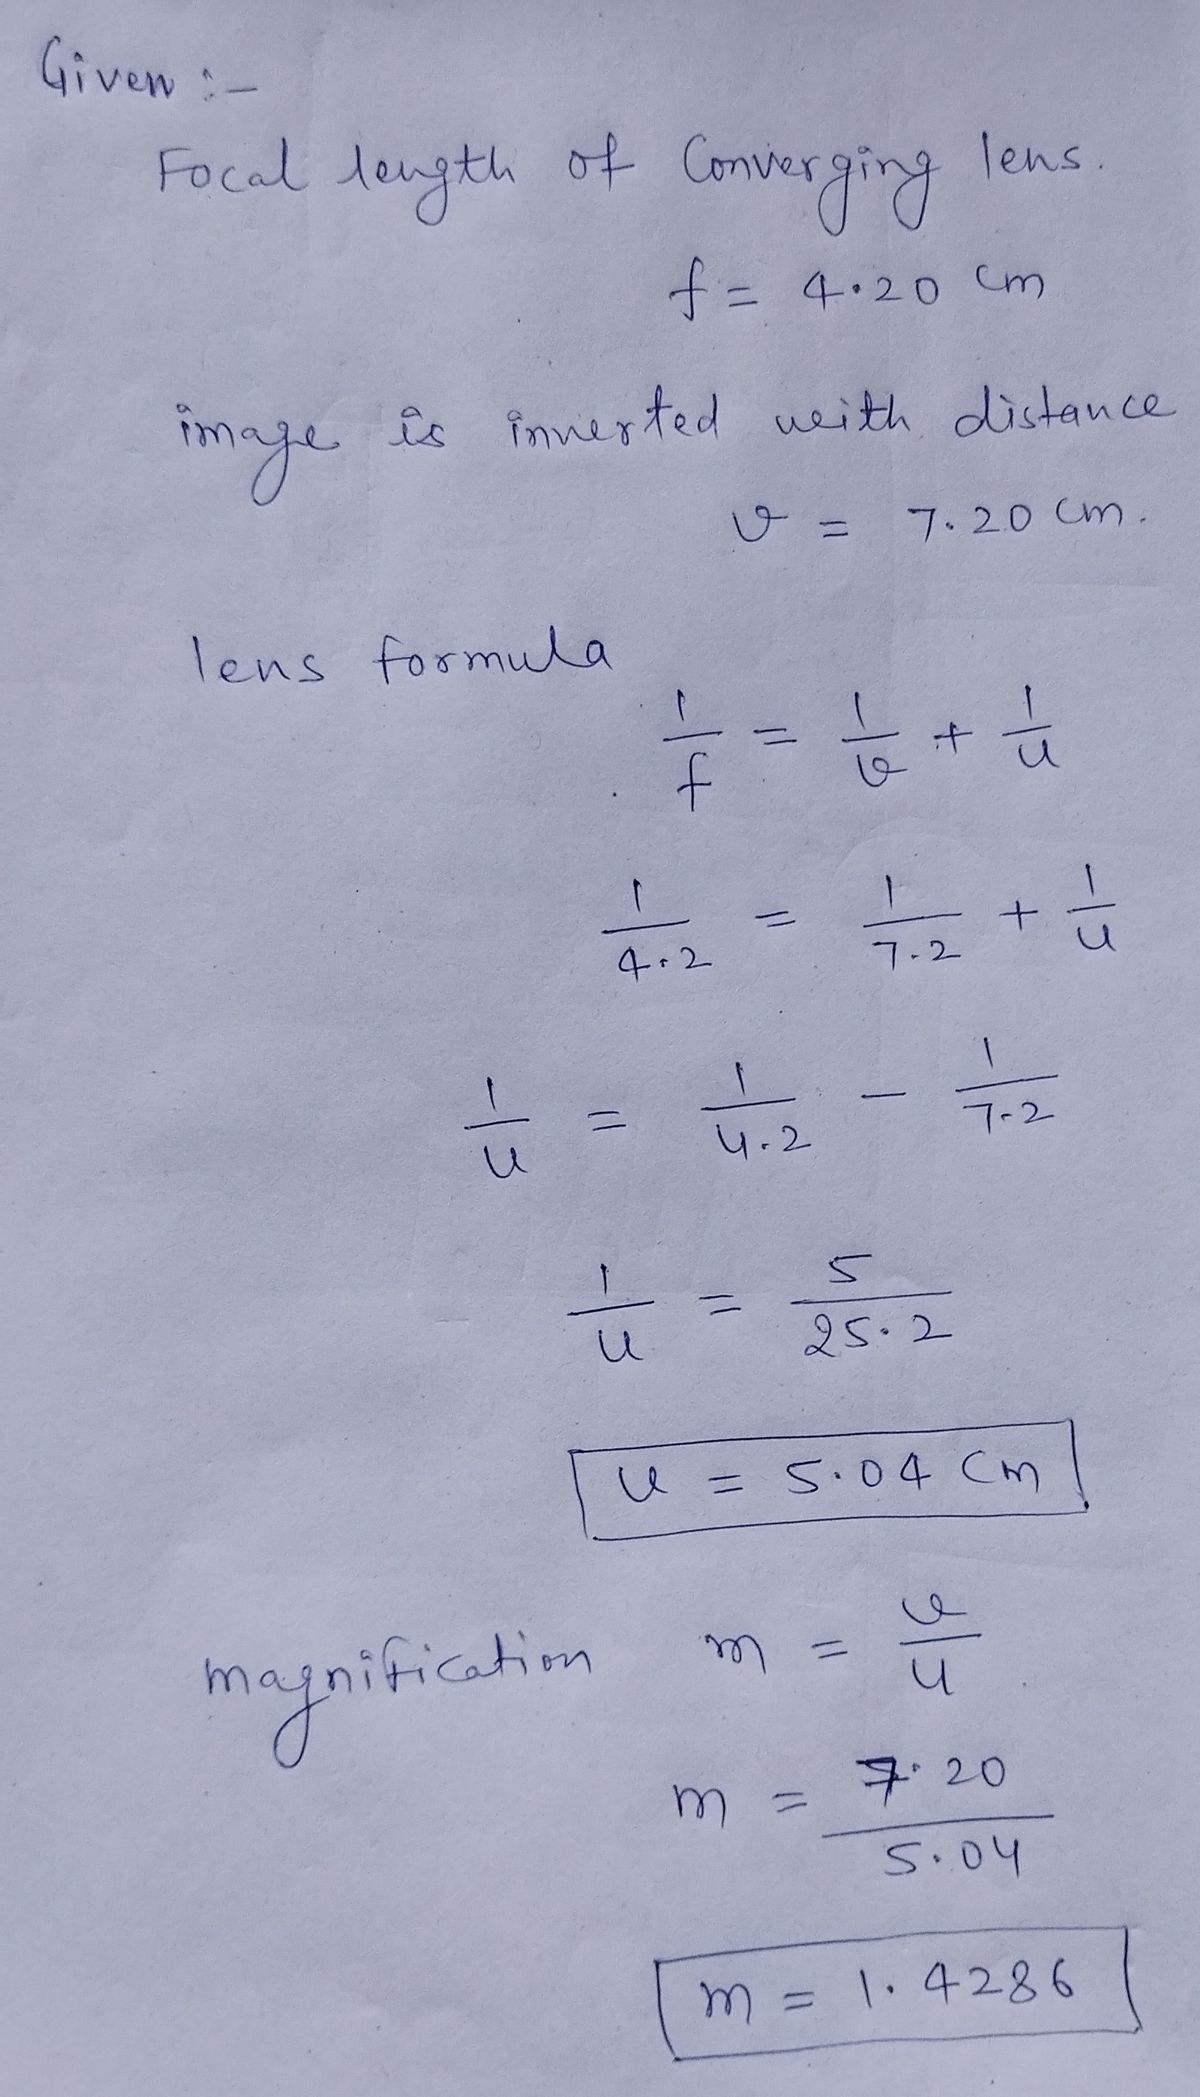 Given :-
Focal length of Converging lens.
f = 4.20 cm
image is inverted with distance
v = 7.20 cm.
lens formula
1/f = 1/v + 1/u
1/4.2 = 1/7.2 + 1/u
1/u = 1/4.2 - 1/7.2
1/u = 5/25.2
u = 5.04 cm
magnification m = v/u
m = 7.20/5.04
m = 1.4286